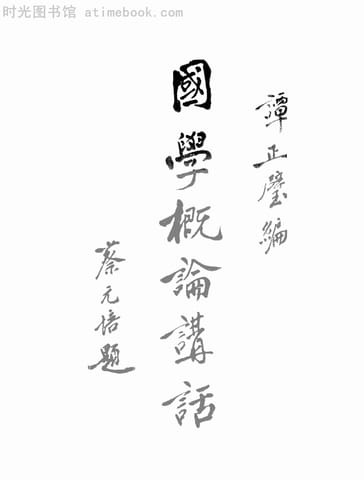 时光图书馆 - atimebook.com
譚正璧編
國學概論講話
蔡元培題